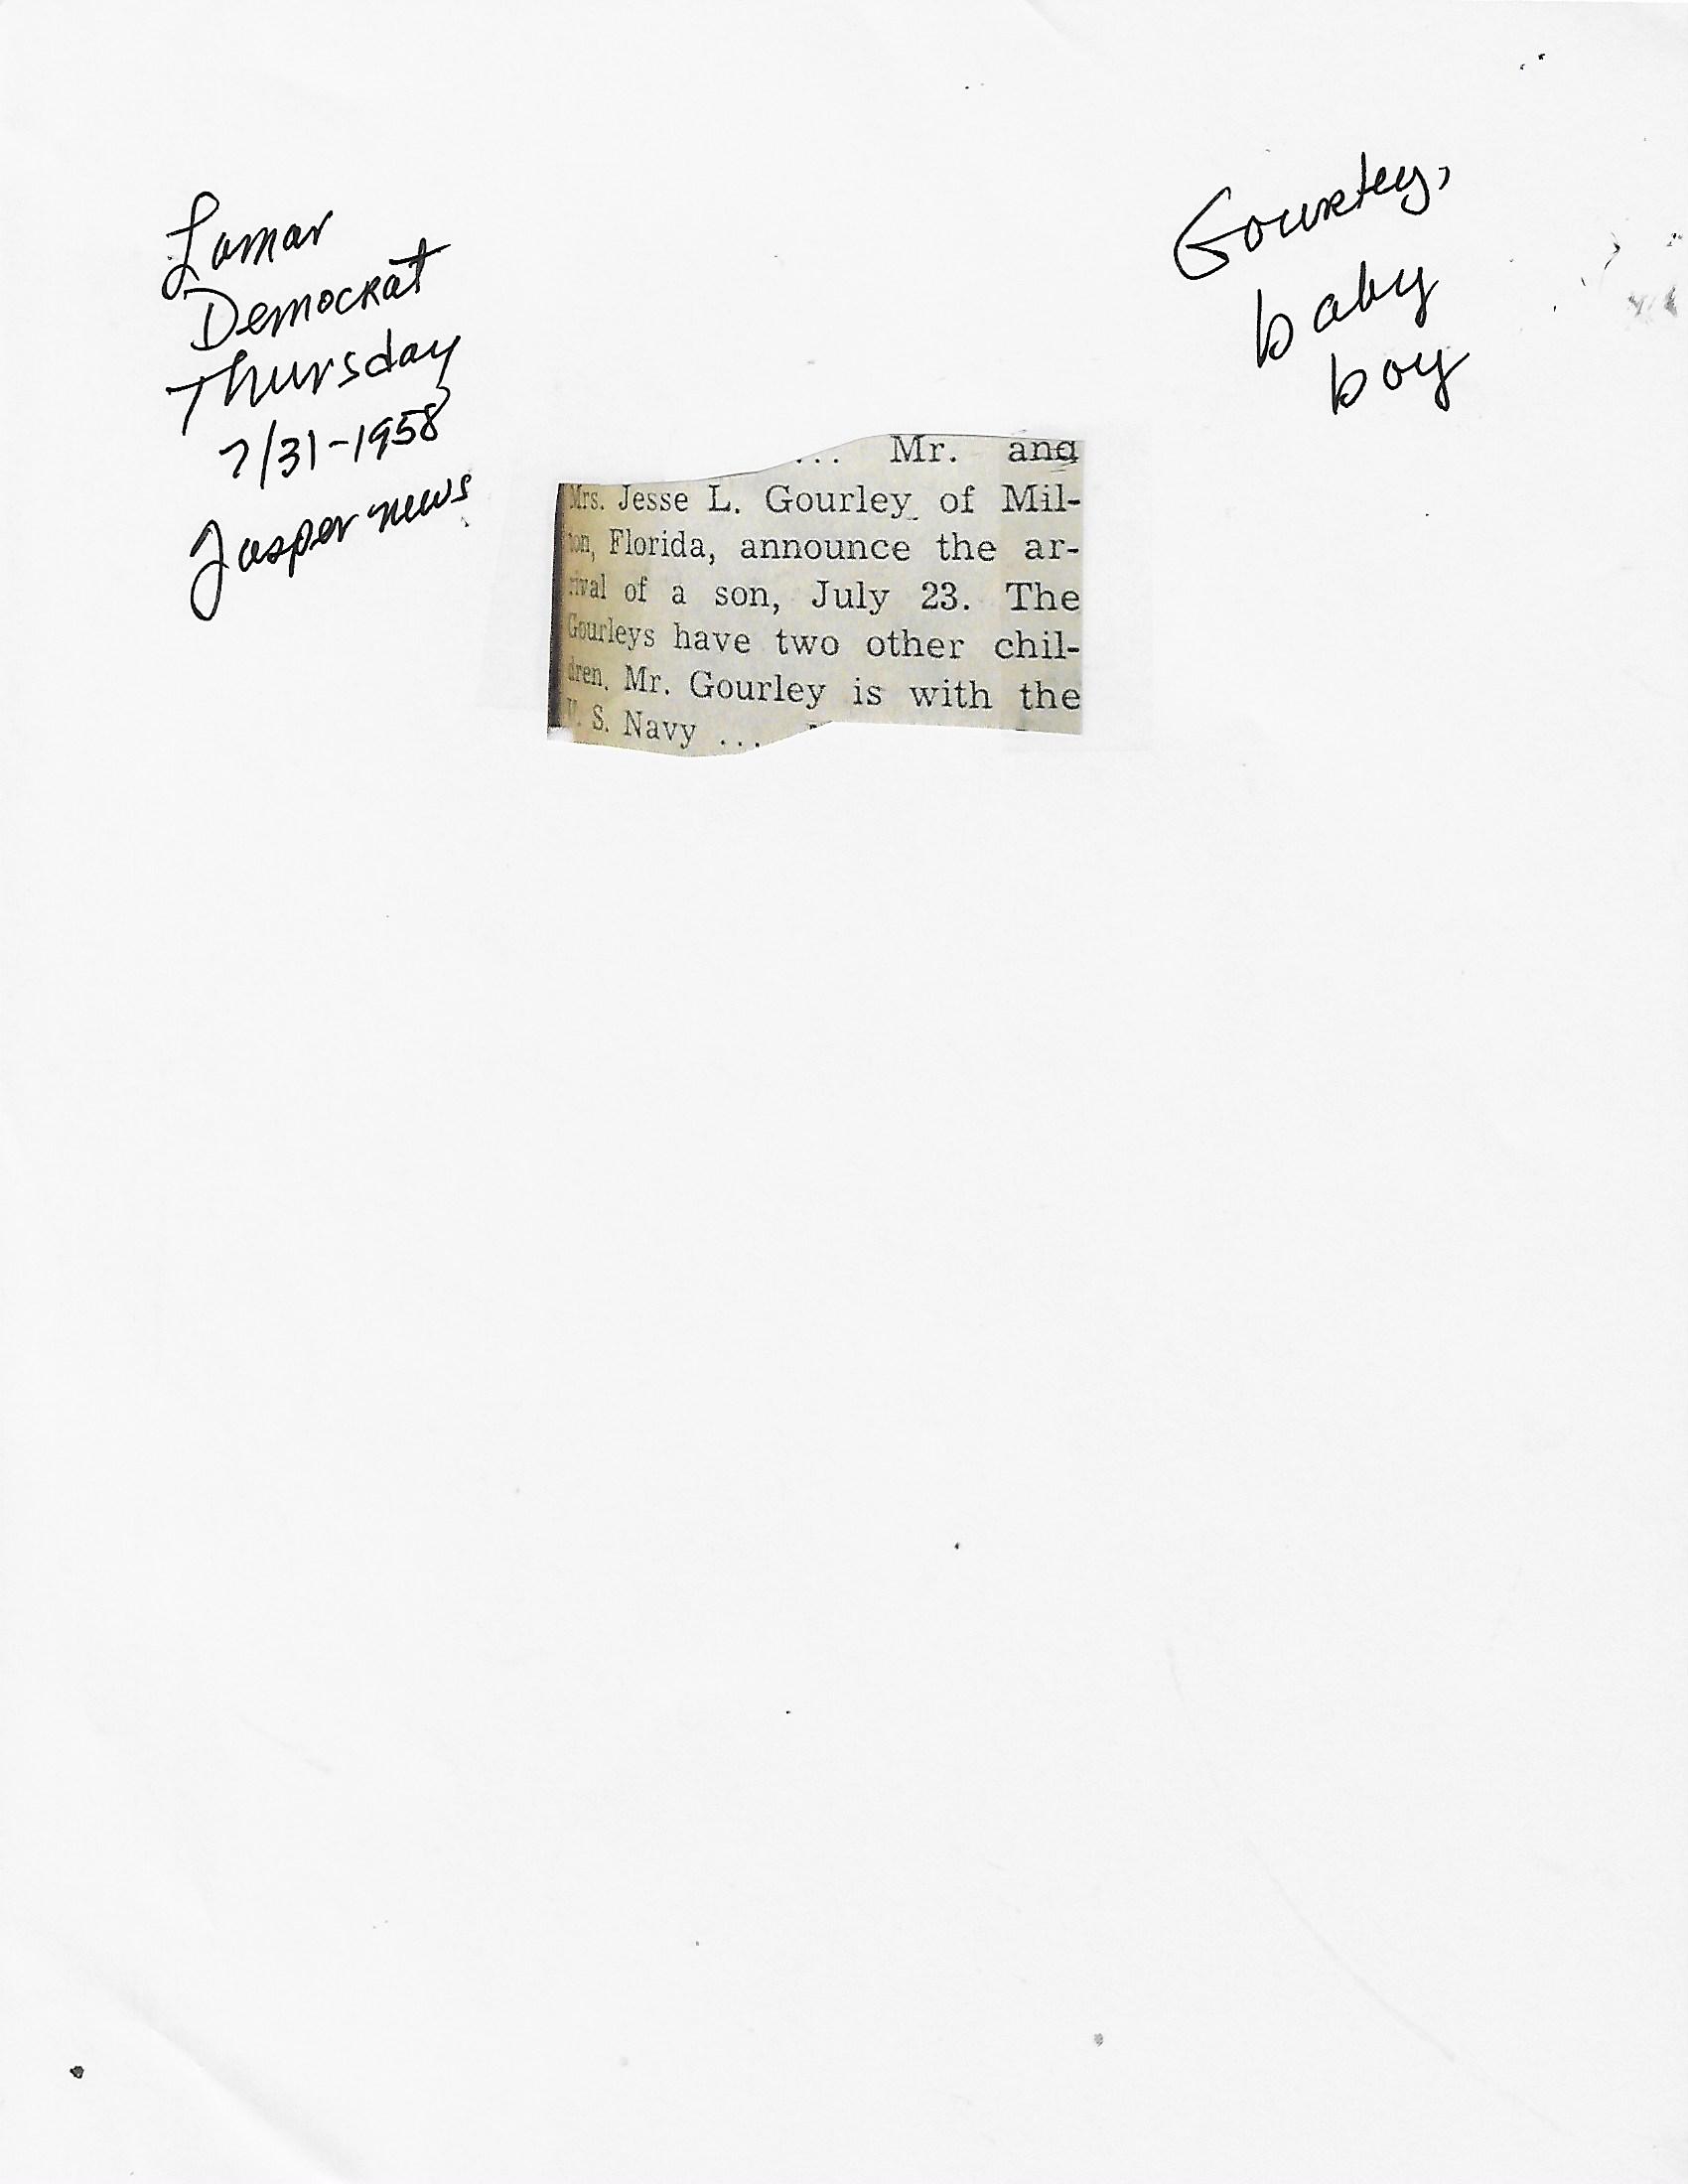 Lamar
Democrat
Thursday
7/31-1958
Jasper news
Gourley,
baby
boy
... Mr. and
Mrs. Jesse L. Gourley of Mil-
ton, Florida, announce the ar-
rival of a son, July 23. The
Gourleys have two other chil-
dren. Mr. Gourley is with the
U. S. Navy ...